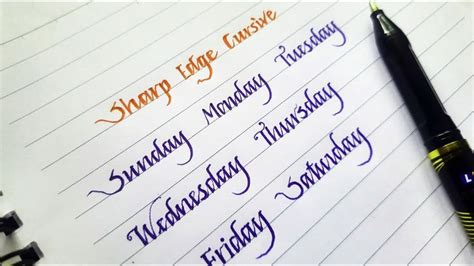 Sharp Edge Cursive
Sunday Monday Tuesday
Wednesday Thursday
Friday Saturday